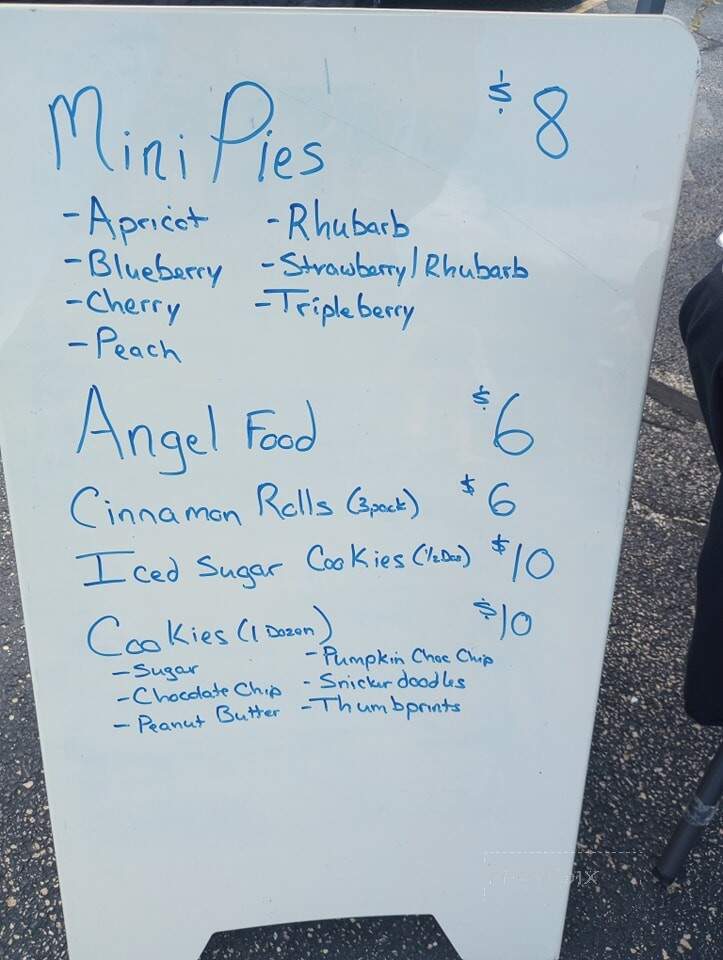 Mini Pies $8
-Apricot -Rhubarb
-Blueberry -Strawberry/Rhubarb
-Cherry -Tripleberry
-Peach
Angel Food $6
Cinnamon Rolls (3pack) $6
Iced Sugar Cookies (1/2 Doz) $10
Cookies (1 Dozen) $10
-Sugar -Pumpkin Choc Chip
-Chocolate Chip -Snickerdoodles
-Peanut Butter -Thumbprints